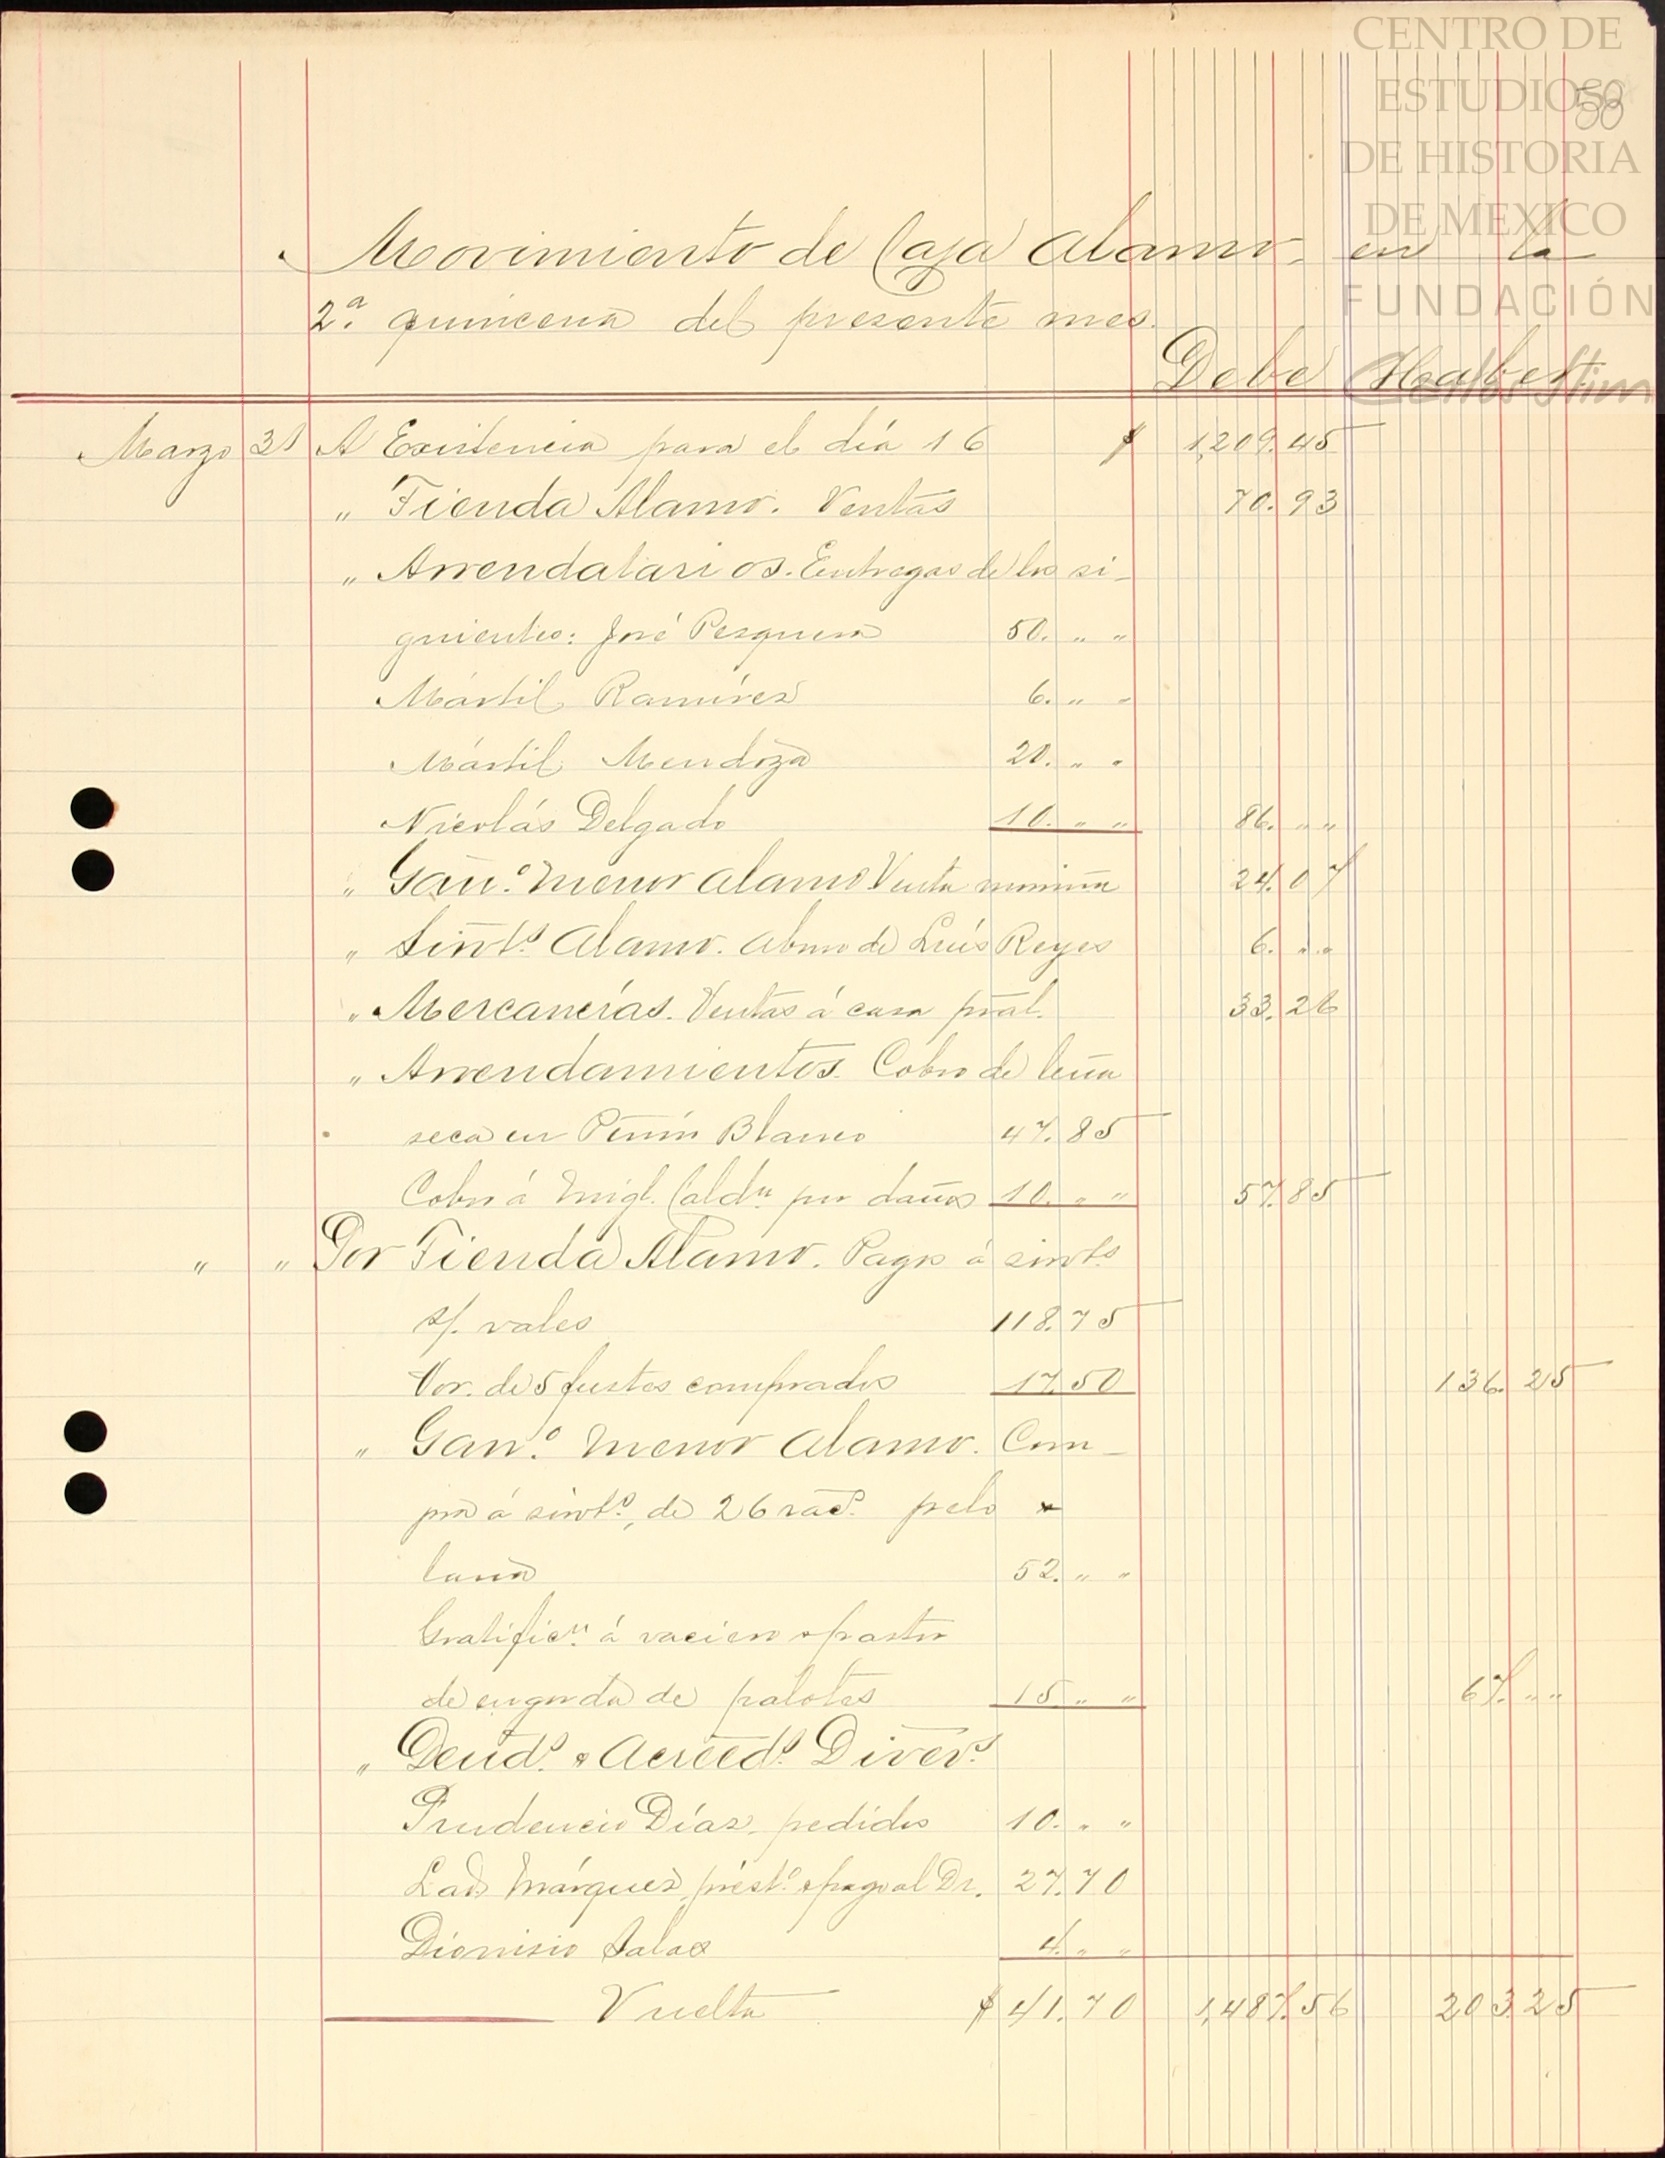 CENTRO DE
ESTUDIOS
DE HISTORIA
DE MEXICO
FUNDACIÓN
Carlos Slim
58
Movimiento de Caja Alamo en la
2ª quincena del presente mes.
Debe Haber
Marzo 31 A Existencia para el día 16 $ 1,209.45
" Tienda Alamo. Ventas 70.93
" Arrendatarios. Entregas de los si-
guientes: José Pesquera 50. " "
Mártil Ramírez 6. " "
Mártil Mendoza 20. " "
Nicolás Delgado 10. " " 86. " "
" Gano. menor Alamo Venta 24.07
" Sirvts. Alamo. Abono de Luís Reyes 6. " "
" Mercancías. Ventas á casa pral. 33.26
" Arrendamientos. Cobro de leña
seca en Peñón Blanco 47.85
Cobro á Migl. Caldn. por daños 10. " " 57.85
" " Por Tienda Alamo. Pagos á sirvts.
s/. vales 118.75
Vor. de 5 fustes comprados 17.50 136.25
" Gano. menor Alamo. Com-
pra á sirvts., de 26 racs. pelo x
lana 52. " "
Gratificn. á vaciero x pastor
de engorda de 15 " " 67. " "
" Deuds. x Acreeds. Divers.
Prudencio Díaz, pedidos 10. " "
Lad. Márquez, prést. x pago al Dr. 27.70
Dionisio Salas 4. " "
Vuelta $ 41.70 1,487.56 203.25